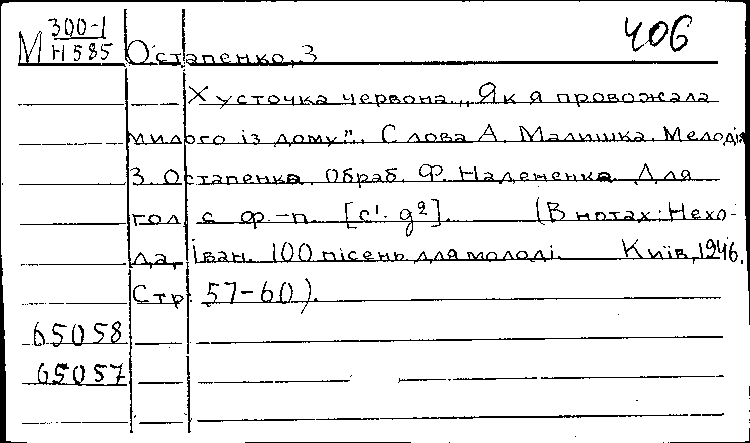 406
М 300-1
Н585
Остапенко, З
Хусточка червона. „Як я провожала
милого із дому". Слова А. Малишка. Мелодія
З. Остапенка. Обраб. Ф. Надененка. Для
гол. с ф.-п. [c¹. g²]. (В нотах: Нехо-
да, Іван. 100 пісень для молоді. Київ, 1946.
Стр. 57-60).
65058
65057